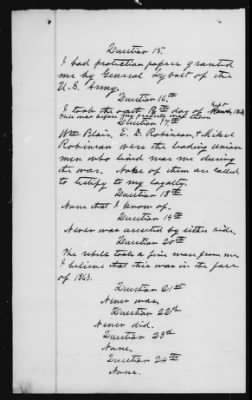 Question 15.
I had protection papers granted
me by General Sybart of the
U.S. Army.
Question 16th
I took the oath 16th day of
was before my property was taken
Question 17th
Wm Blair, E. D. Robinson, + Mikel
Robinson were the leading union
men who lived near me during
the war. None of them are called
to testify to my loyalty.
Question 18th
None that I know of.
Question 19th
Never was arrested by either side.
Question 20th
The rebels took a fine mare from me
I believe that this was in the fall
of 1863.
Question 21st
Never was.
Question 22nd
Never did.
Question 23rd
None.
Question 24th
None.